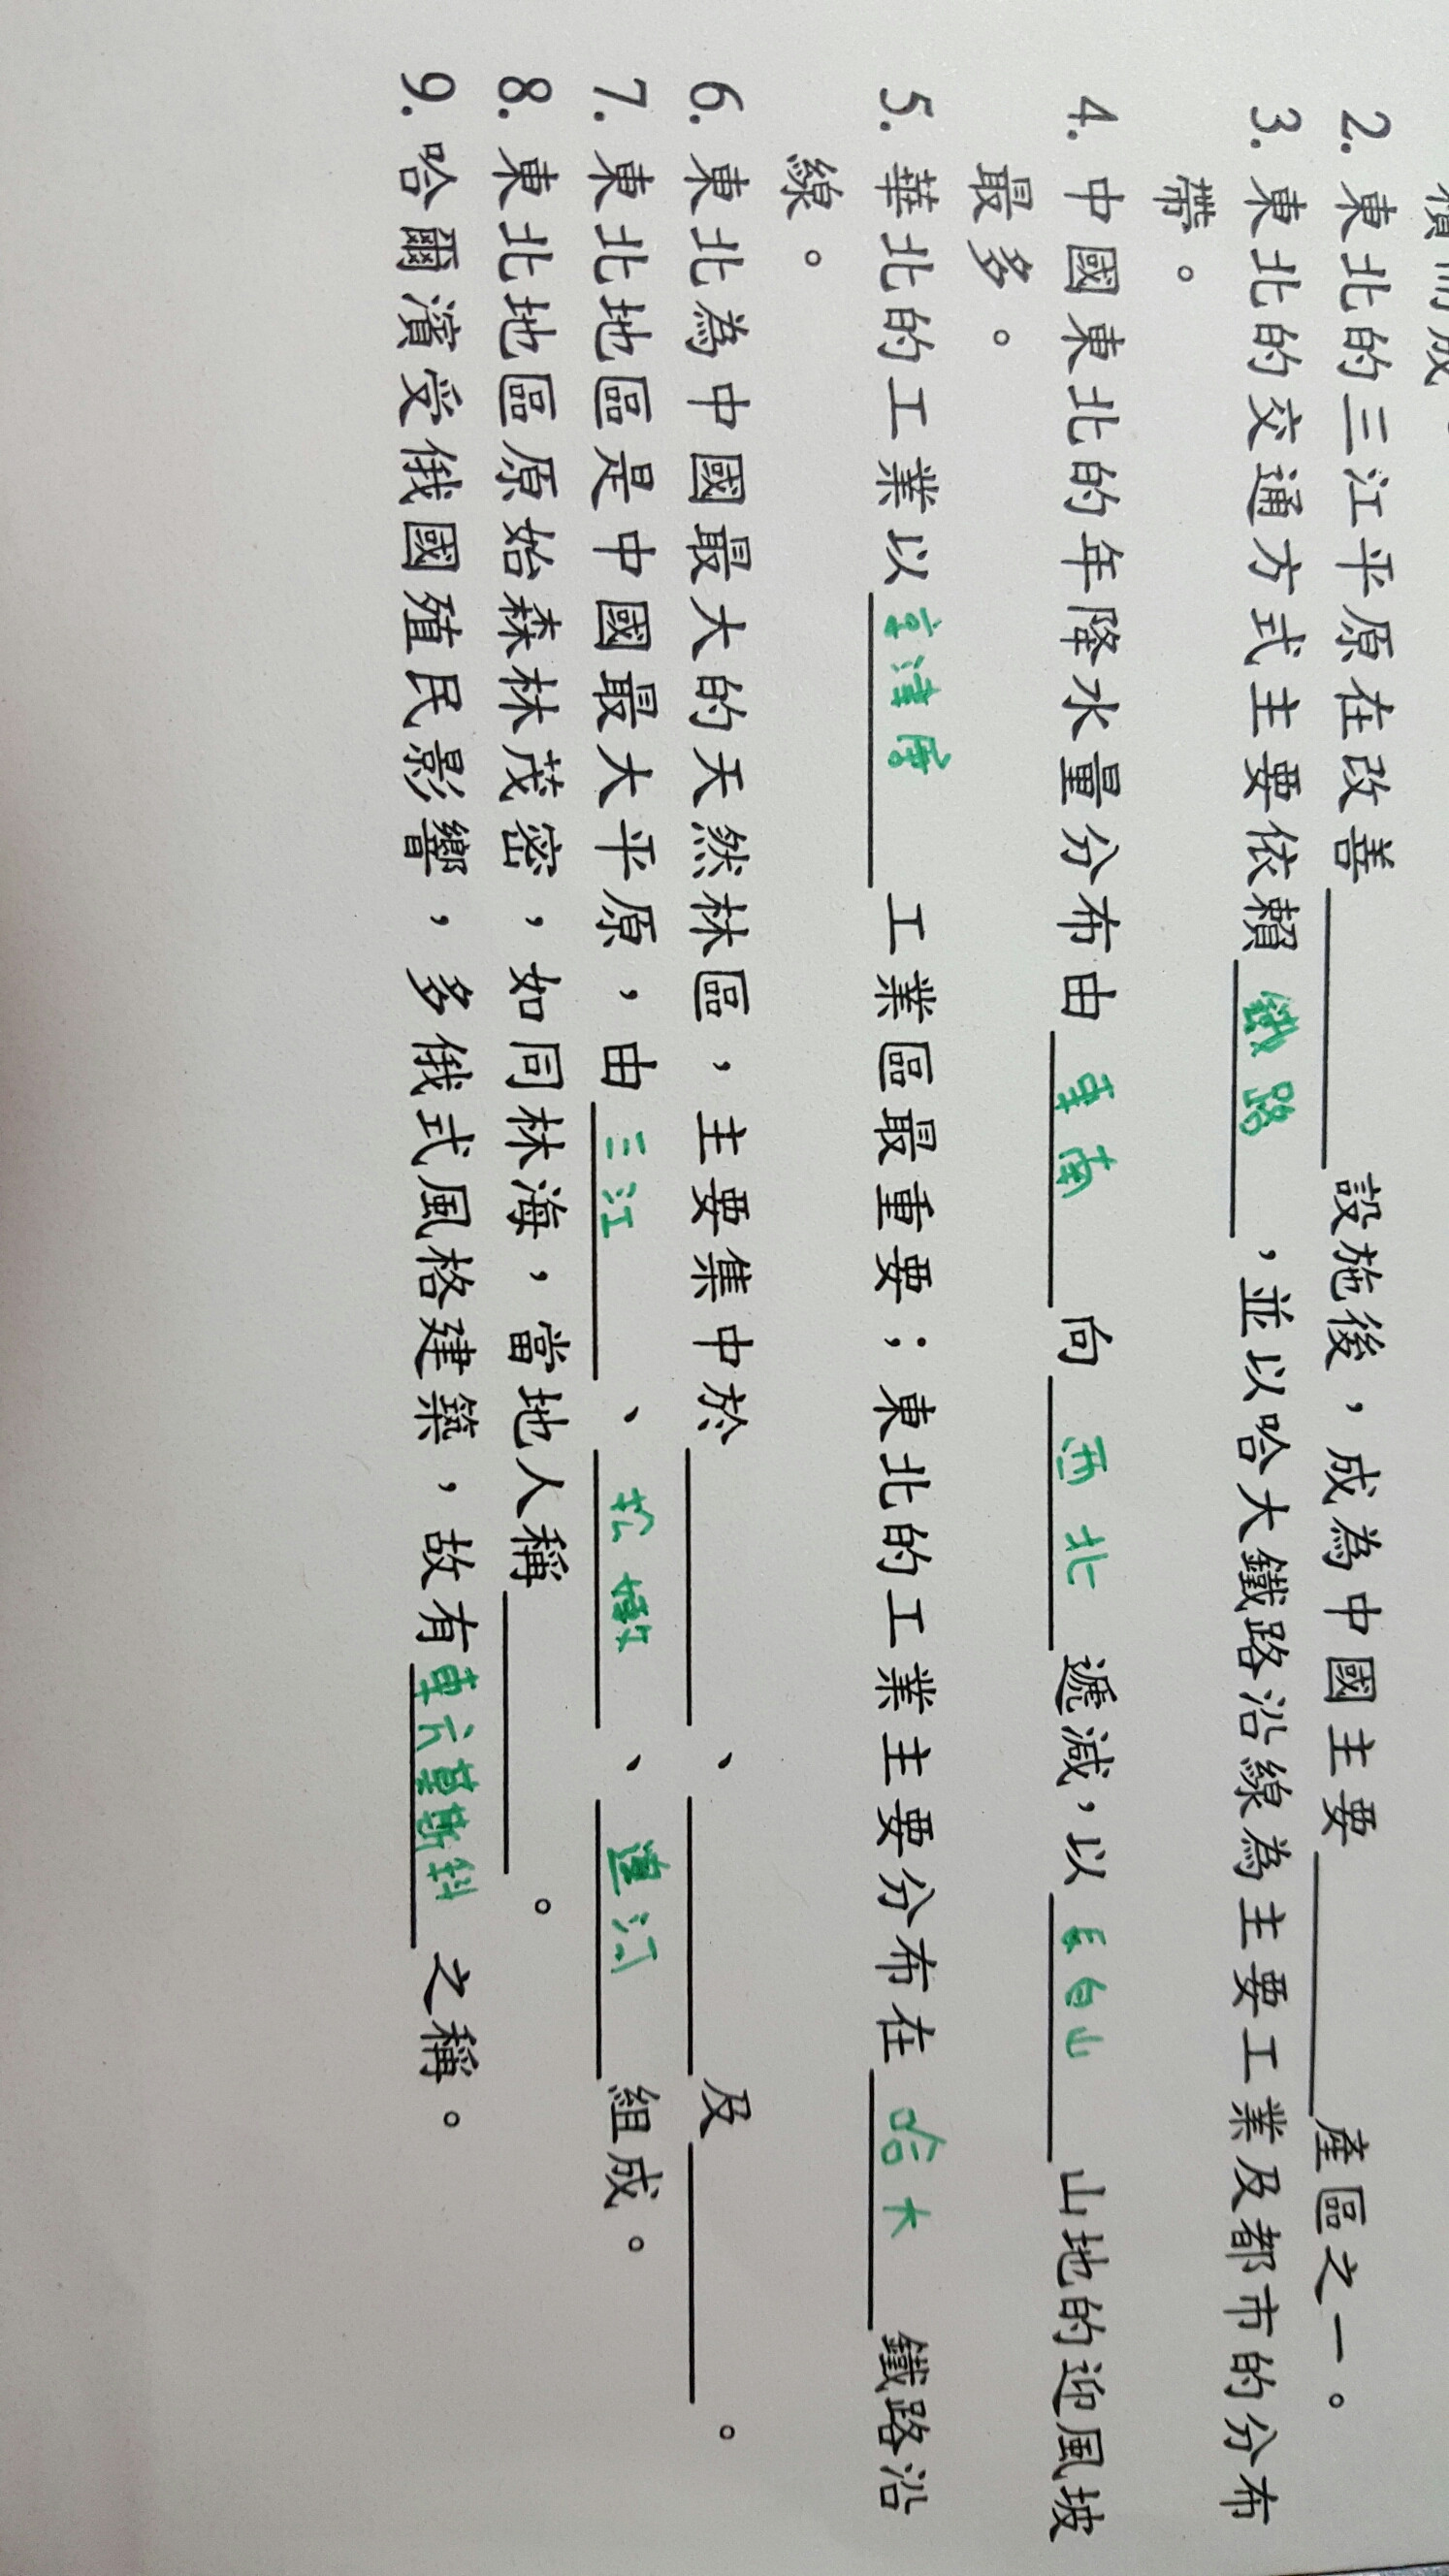 積而成
2. 東北的三江平原在改善＿＿＿＿設施後，成為中國主要＿＿＿＿產區之一。
3. 東北的交通方式主要依賴 鐵路 ，並以哈大鐵路沿線為主要工業及都市的分布
帶。
4. 中國東北的年降水量分布由 東南 向 西北 遞減，以 長白山 山地的迎風坡
最多。
5. 華北的工業以 京津唐 工業區最重要；東北的工業主要分布在 哈大 鐵路沿
線。
6. 東北為中國最大的天然林區，主要集中於＿＿＿＿、＿＿＿＿及＿＿＿＿。
7. 東北地區是中國最大平原，由 三江 、 松嫩 、 遼河 組成。
8. 東北地區原始森林茂密，如同林海，當地人稱＿＿＿＿。
9. 哈爾濱受俄國殖民影響，多俄式風格建築，故有 東方莫斯科 之稱。